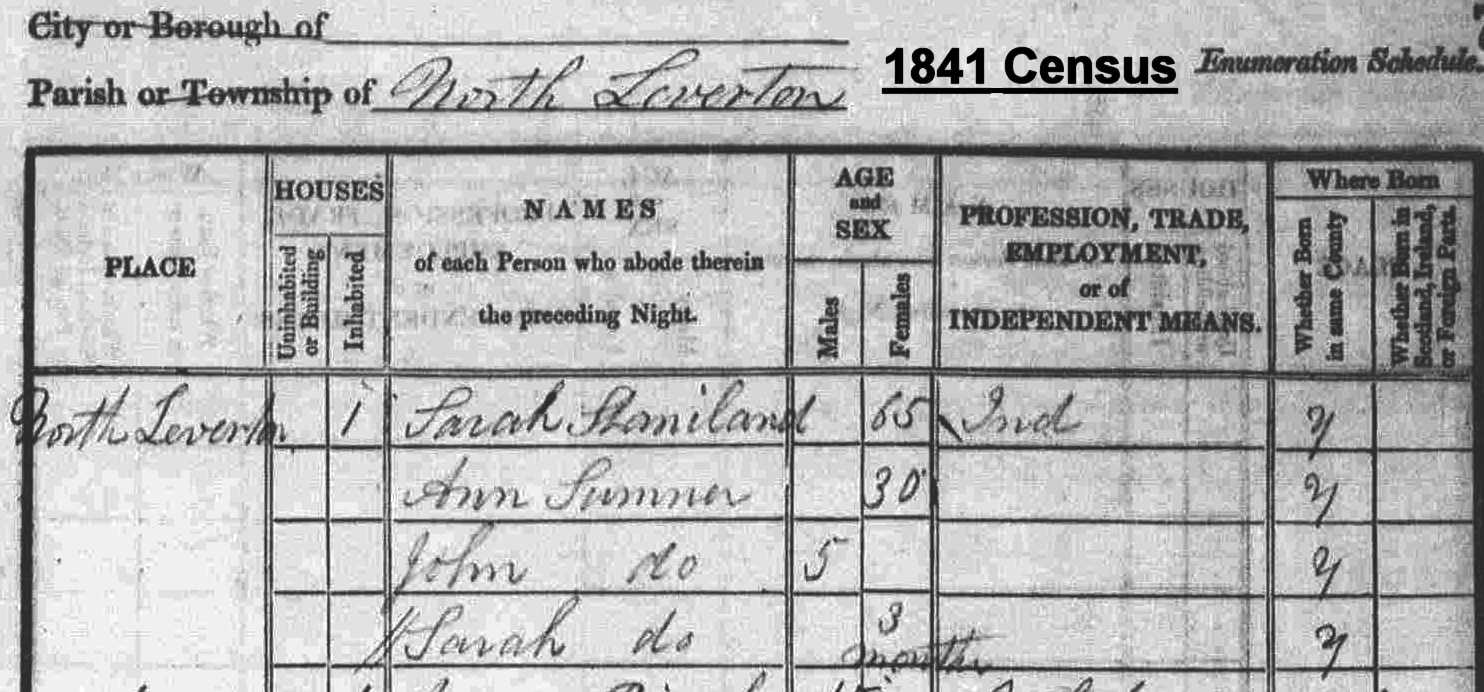 City or Borough of
1841 Census Enumeration Schedule.
Parish or Township of North Leverton
PLACE
HOUSES
Uninhabited or Building
Inhabited
NAMES
of each Person who abode therein
the preceding Night.
AGE
and
SEX
Males
Females
PROFESSION, TRADE,
EMPLOYMENT,
or of
INDEPENDENT MEANS.
Where Born
Whether Born in same County
Whether Born in Scotland, Ireland, or Foreign Parts.
North Leverton 1 Sarah Staniland 65 Ind y
Ann Sumner 30 y
John do 5 y
Sarah do 3 month y